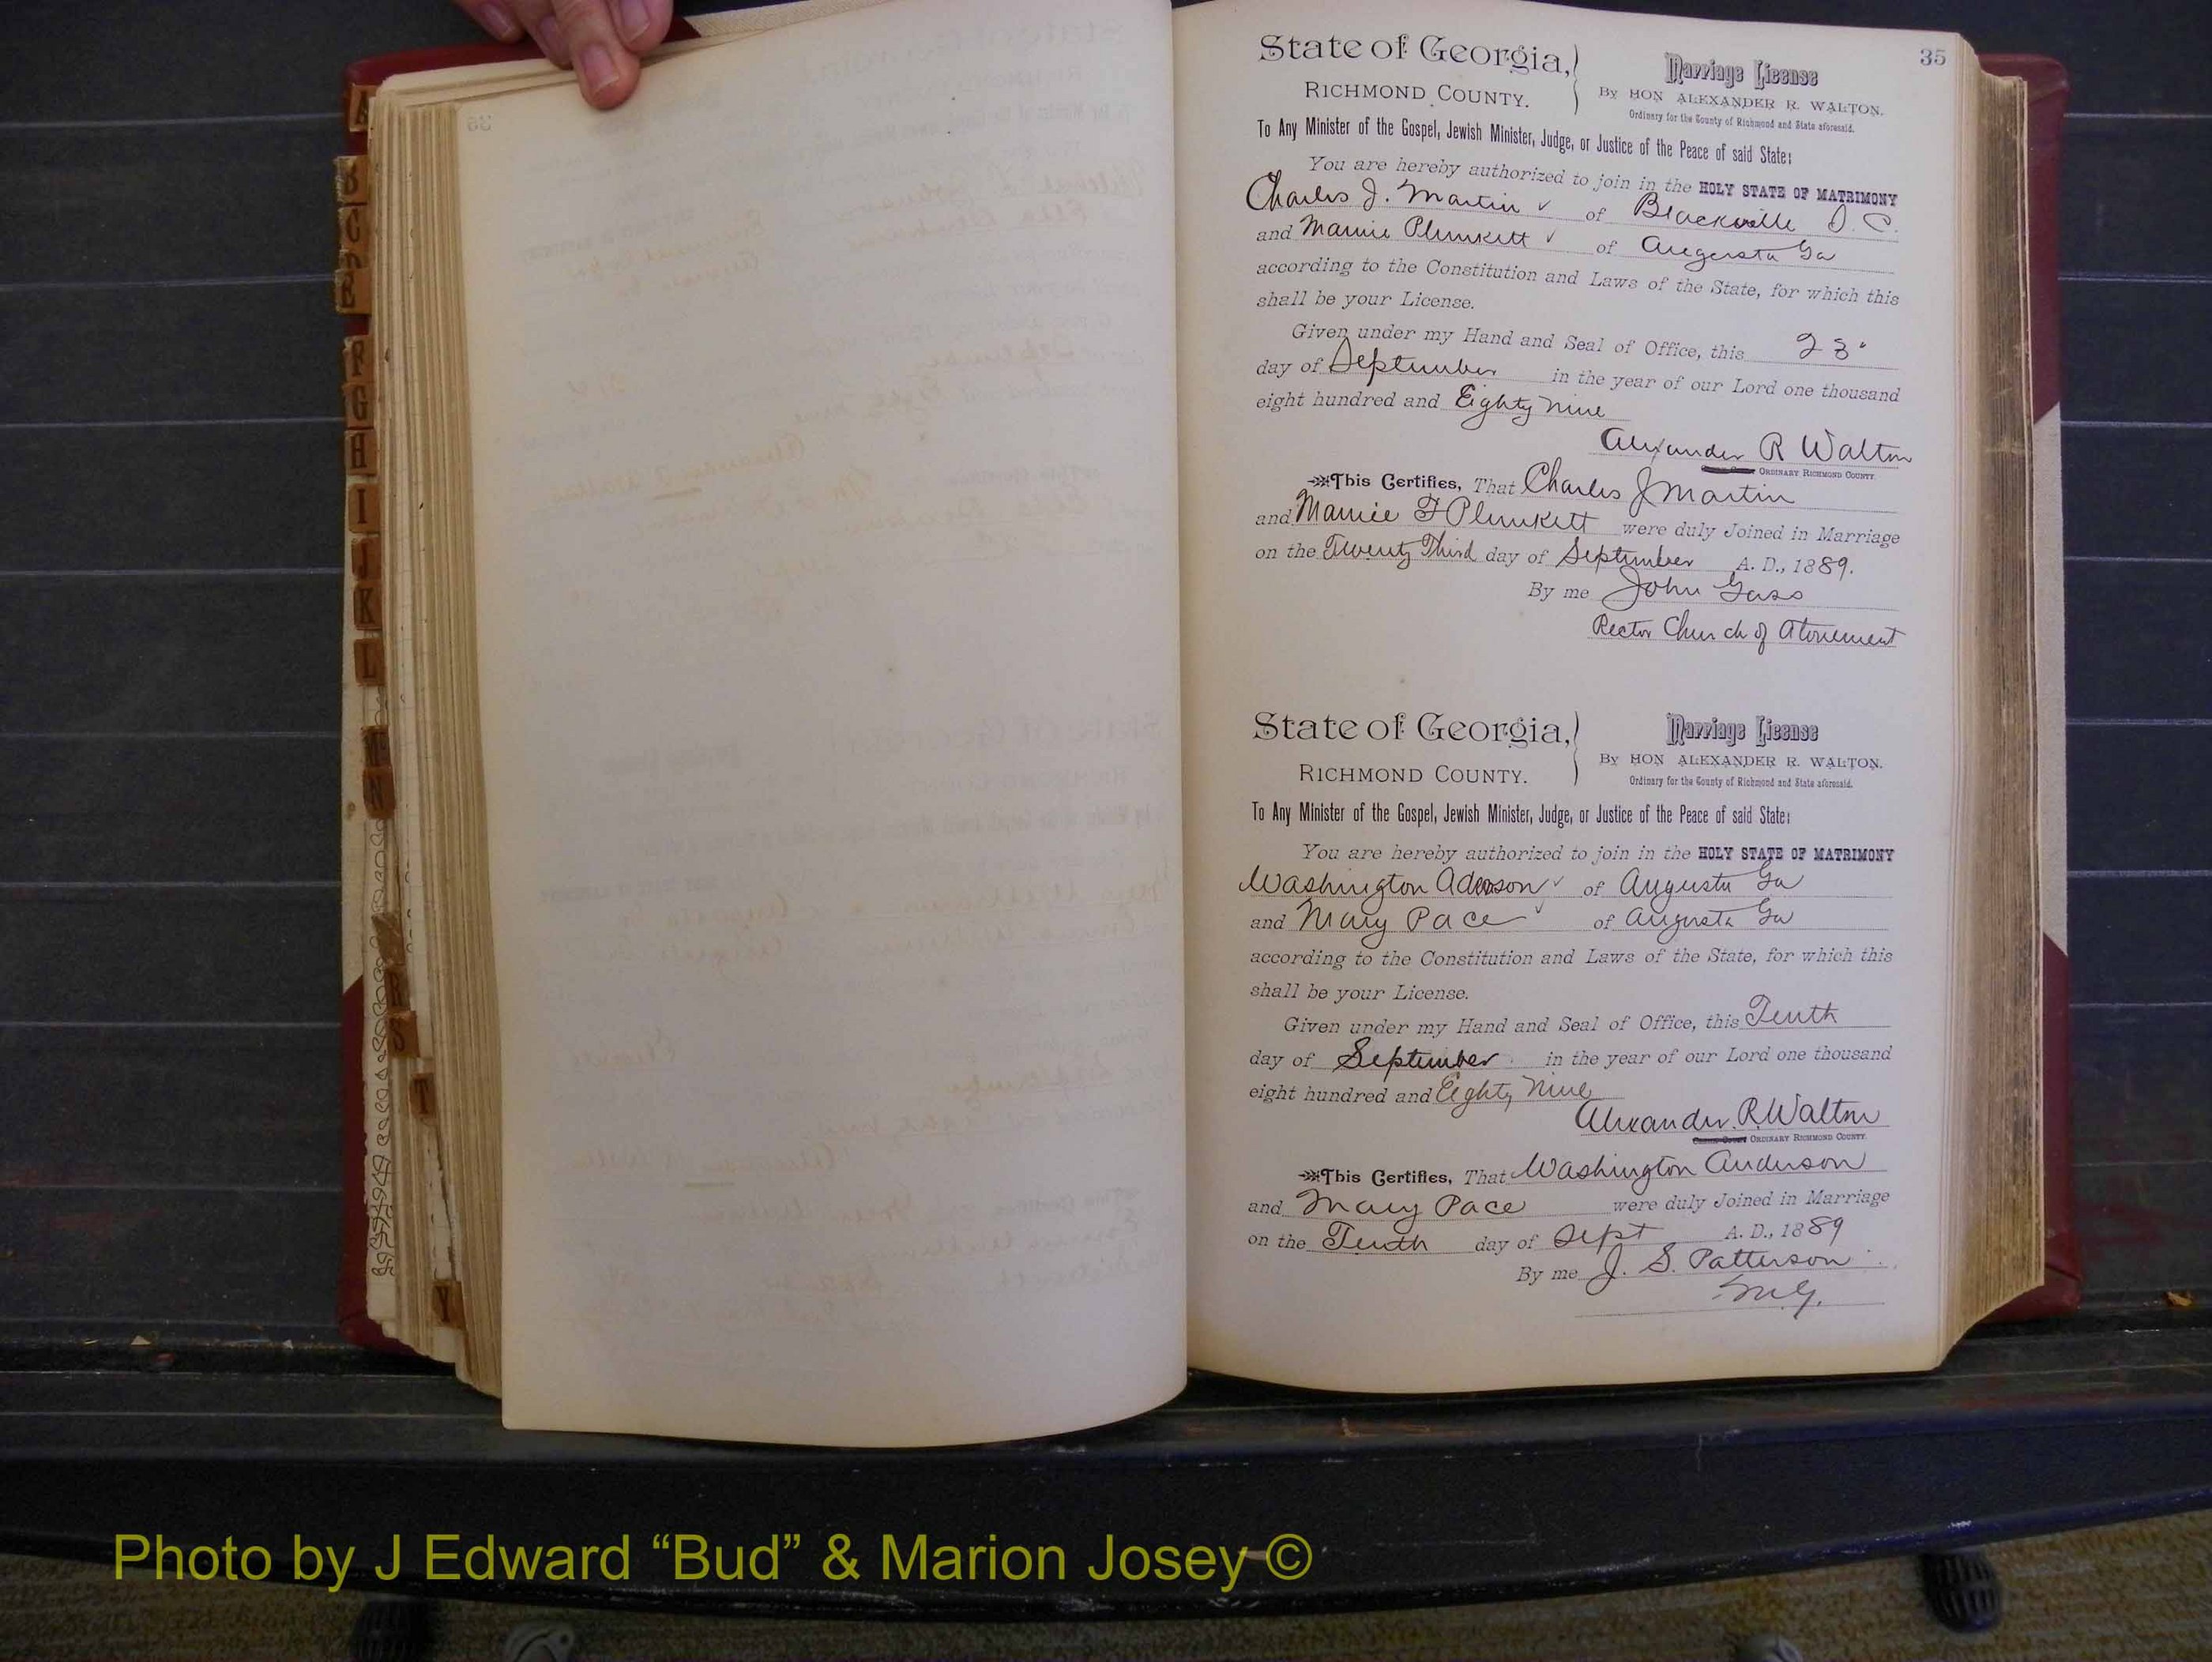 35
State of Georgia,
RICHMOND COUNTY.
Marriage License
By HON ALEXANDER R. WALTON,
Ordinary for the County of Richmond and State aforesaid.
To Any Minister of the Gospel, Jewish Minister, Judge, or Justice of the Peace of said State:
You are hereby authorized to join in the HOLY STATE OF MATRIMONY
Charles J. Martin ✓ of Blackville S. C.
and Mamie Plunkett ✓ of Augusta Ga
according to the Constitution and Laws of the State, for which this
shall be your License.
Given under my Hand and Seal of Office, this 23"
day of September in the year of our Lord one thousand
eight hundred and Eighty nine
Alexander R Walton
ORDINARY RICHMOND COUNTY.
This Certifies, That Charles J Martin
and Mamie F Plunkett were duly Joined in Marriage
on the Twenty Third day of September A. D., 1889.
By me John Gass
Rector Church of Atonement
State of Georgia,
RICHMOND COUNTY.
Marriage License
By HON ALEXANDER R. WALTON,
Ordinary for the County of Richmond and State aforesaid.
To Any Minister of the Gospel, Jewish Minister, Judge, or Justice of the Peace of said State:
You are hereby authorized to join in the HOLY STATE OF MATRIMONY
Washington ✓ of Augusta Ga
and Mary Pace ✓ of Augusta Ga
according to the Constitution and Laws of the State, for which this
shall be your License.
Given under my Hand and Seal of Office, this Tenth
day of September in the year of our Lord one thousand
eight hundred and Eighty Nine
Alexander R. Walton
ORDINARY RICHMOND COUNTY.
This Certifies, That Washington Anderson
and Mary Pace were duly Joined in Marriage
on the Tenth day of Sept A. D., 1889
By me J. S. Patterson
M.G.
A
B
C
F
G
H
I
J
K
L
Mc
N
R
S
T
Y
Photo by J Edward “Bud” & Marion Josey ©